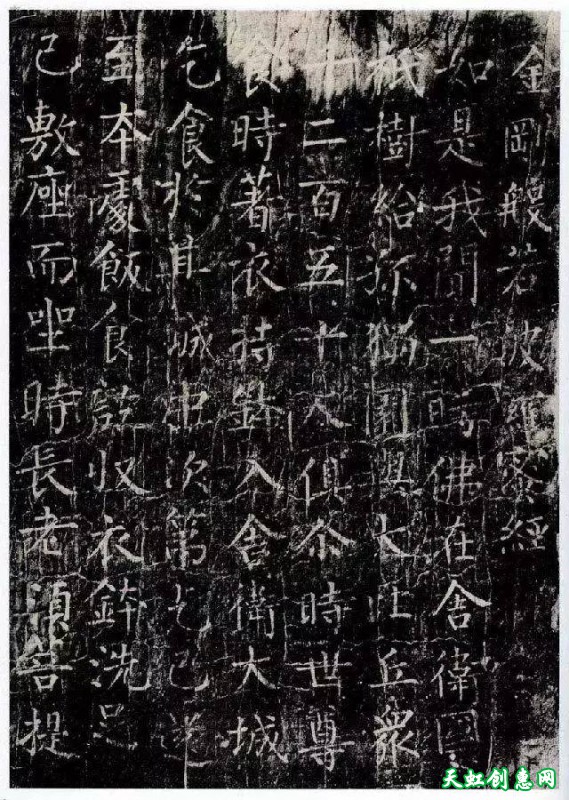 金剛般若波羅蜜經
如是我聞一時佛在舍衛國
祇樹給孤獨園與大比丘衆
千二百五十人俱尒時世尊
食時著衣持鉢入舍衛大城
乞食於其城中次第乞已還
至本處飯食訖收衣鉢洗足
已敷座而坐時長老須菩提
天虹创惠网